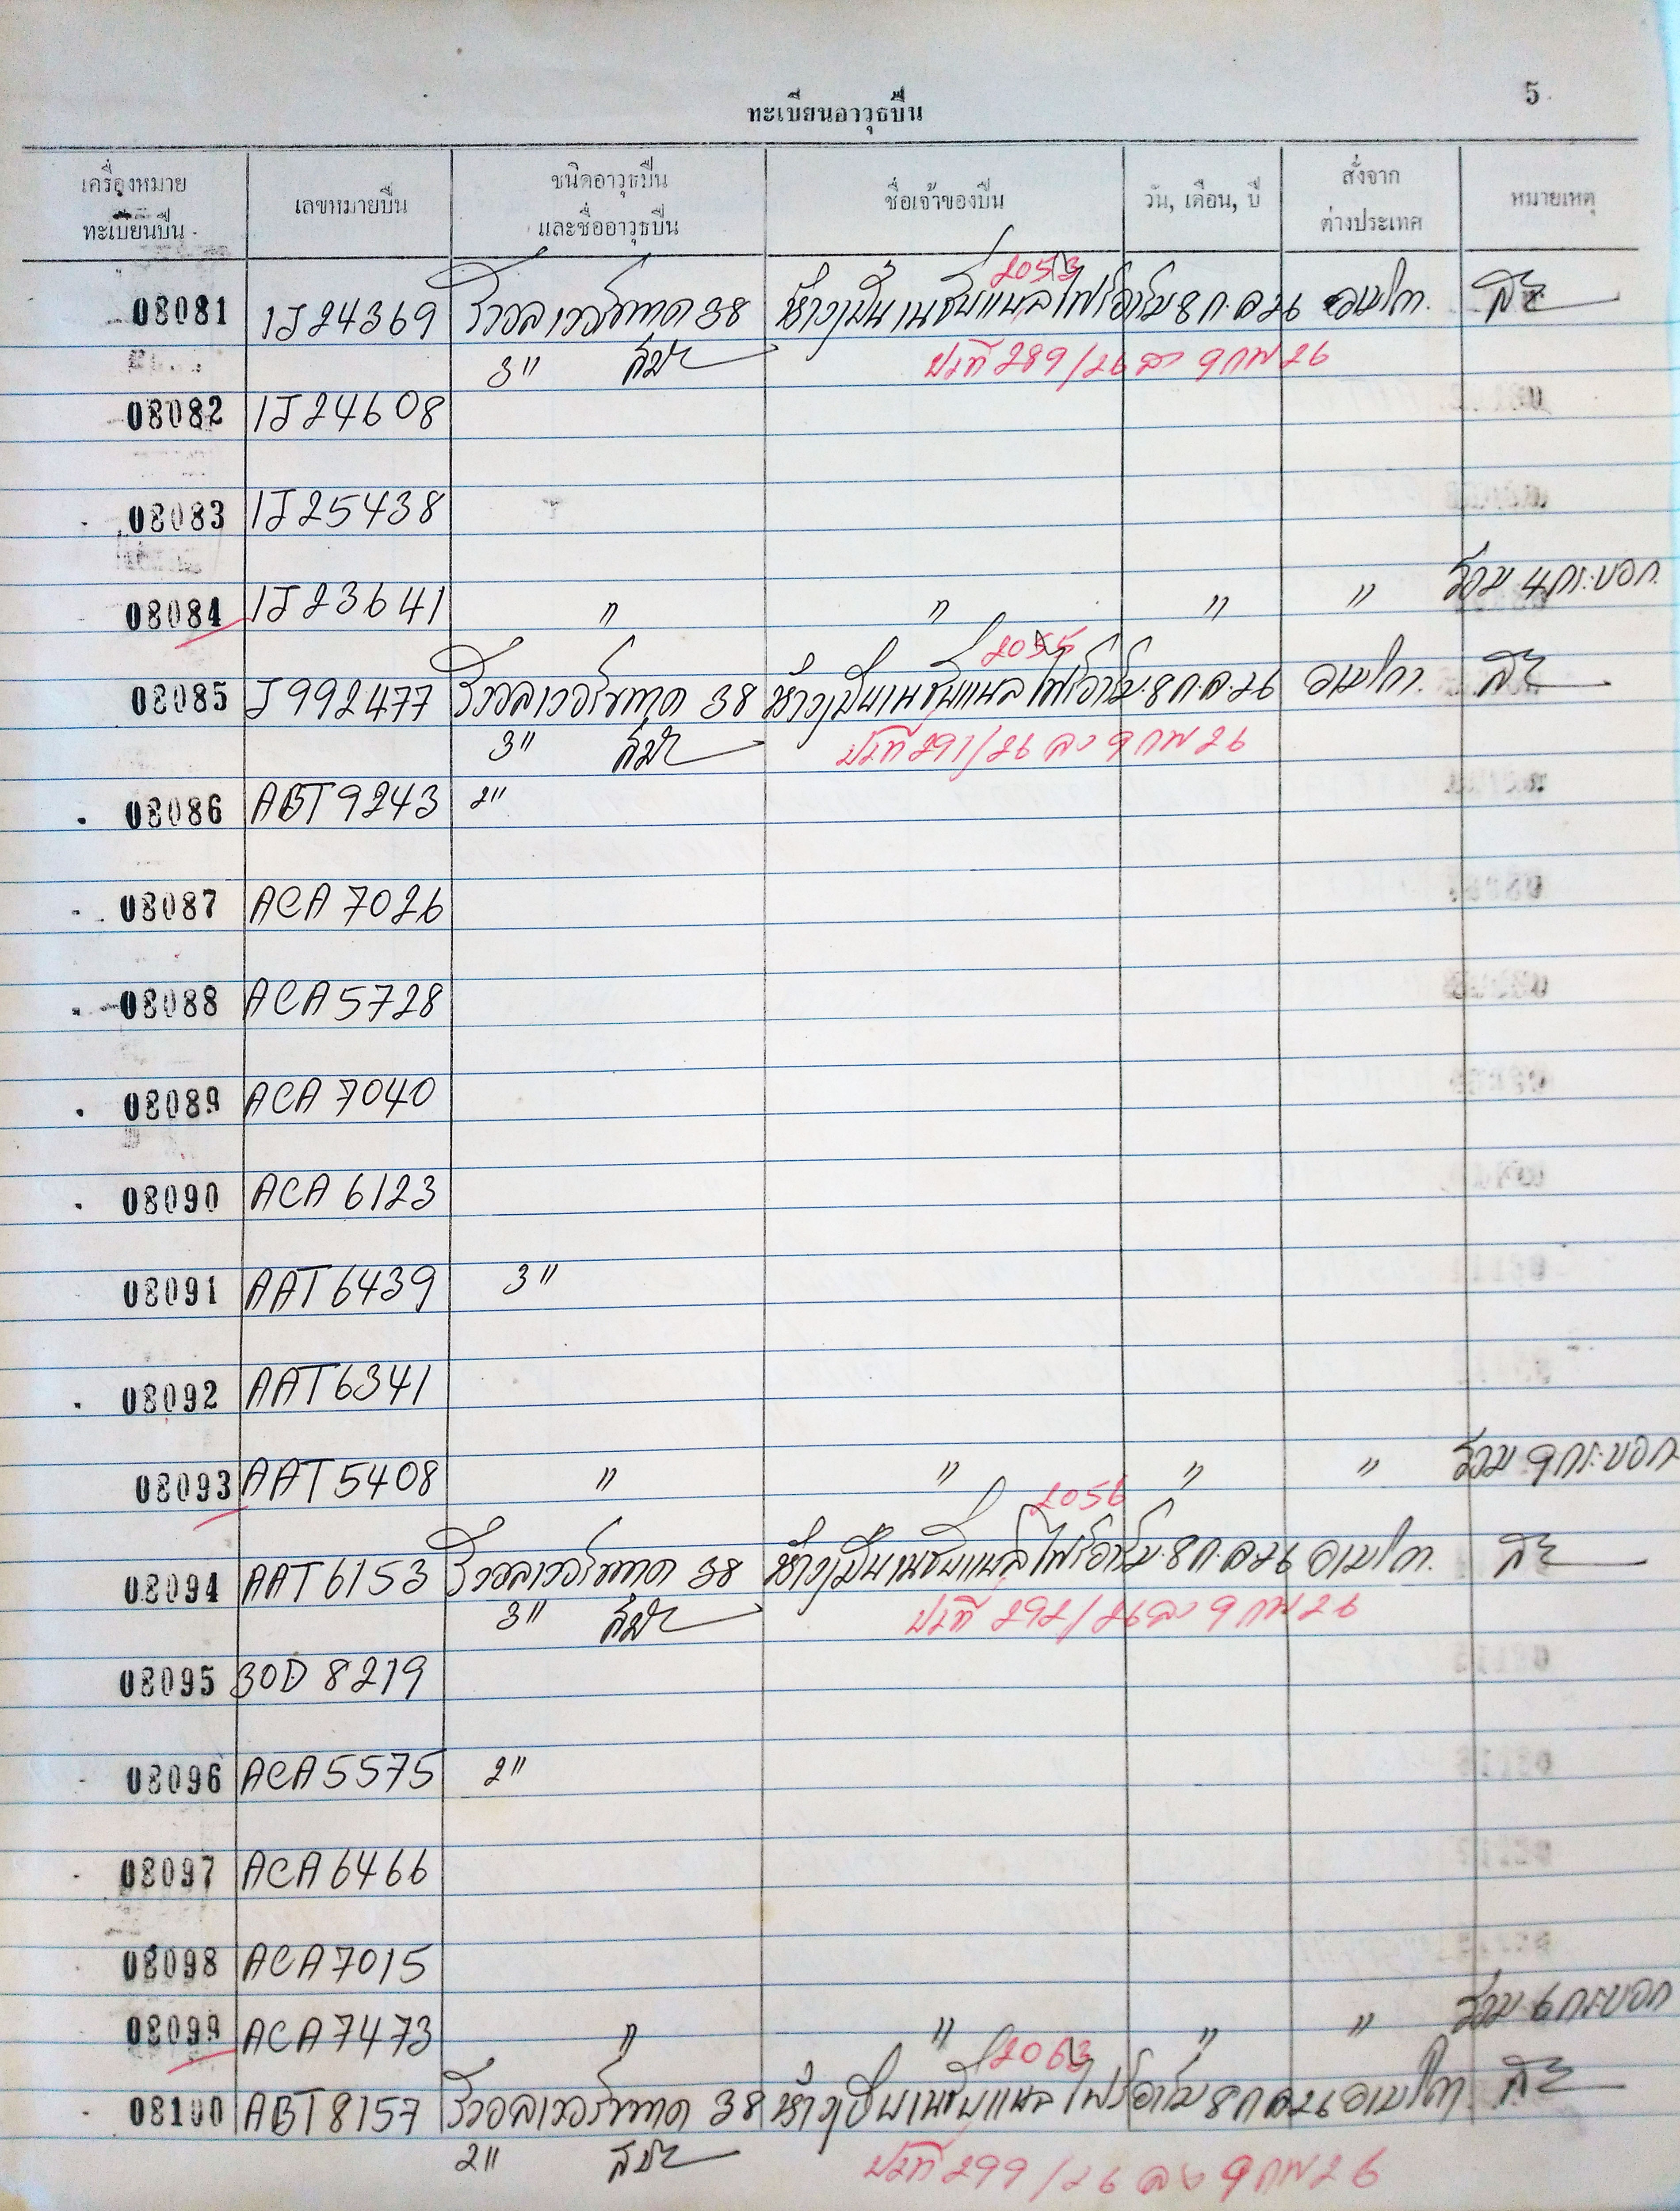 5
ทะเบียนอาวุธปืน
เครื่องหมาย ทะเบียนปืน เลขหมายปืน ชนิดอาวุธปืน และชื่ออาวุธปืน ชื่อเจ้าของปืน วัน, เดือน, ปี สั่งจาก ต่างประเทศ หมายเหตุ
2053
08081 1J24369 รีวอลเวอร์ขนาด 38 ห้างปืนเนชั่นแนลไฟร์อาร์ม 8 ก.ค 26 อเมริกา
3" ปที 289/26 ลว 9 กพ 26
08082 1J24608
08083 1J25438
08084 1J23641 " " " " รวม 4 กระบอก
2055
08085 J992477 รีวอลเวอร์ขนาด 38 ห้างปืนเนชั่นแนลไฟร์อาร์ม 8 ก.ค.26 อเมริกา
3" ปที 291/26 ลว 9 กพ 26
08086 ABT9243 2"
08087 ACA7026
08088 ACA5728
08089 ACA7040
08090 ACA6123
08091 AAT6439 3"
08092 AAT6341
08093 AAT5408 " " " " รวม 9 กระบอก
2056
08094 AAT6153 รีวอลเวอร์ขนาด 38 ห้างปืนเนชั่นแนลไฟร์อาร์ม 8 ก.ค 26 อเมริกา
3" ปที 292/26 ลว 9 กพ 26
08095 30D8219
08096 ACA5575 2"
08097 ACA6466
08098 ACA7015
08099 ACA7473 " " " " รวม 6 กระบอก
2063
08100 ABT8157 รีวอลเวอร์ขนาด 38 ห้างปืนเนชั่นแนลไฟร์อาร์ม 8 ก ค 26 อเมริกา
2" ปที 299/26 ลว 9 กพ 26